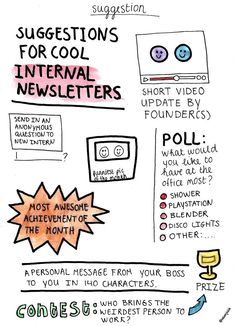 suggestion
SUGGESTIONS
FOR COOL
INTERNAL
NEWSLETTERS
SHORT VIDEO
UPDATE BY
FOUNDER(S)
SEND IN AN
ANONYMOUS
QUESTION TO
NEW INTERN!
?
funniest pic
of the month
POLL:
What would
you like to
have at the
office most?
SHOWER
PLAYSTATION
BLENDER
DISCO LIGHTS
OTHER:....
MOST AWESOME
ACHIEVEMENT OF
THE MONTH
A PERSONAL MESSAGE FROM YOUR BOSS
TO YOU IN 140 CHARACTERS.
PRIZE
CONTEST:
WHO BRINGS THE
WEIRDEST PERSON TO
WORK?